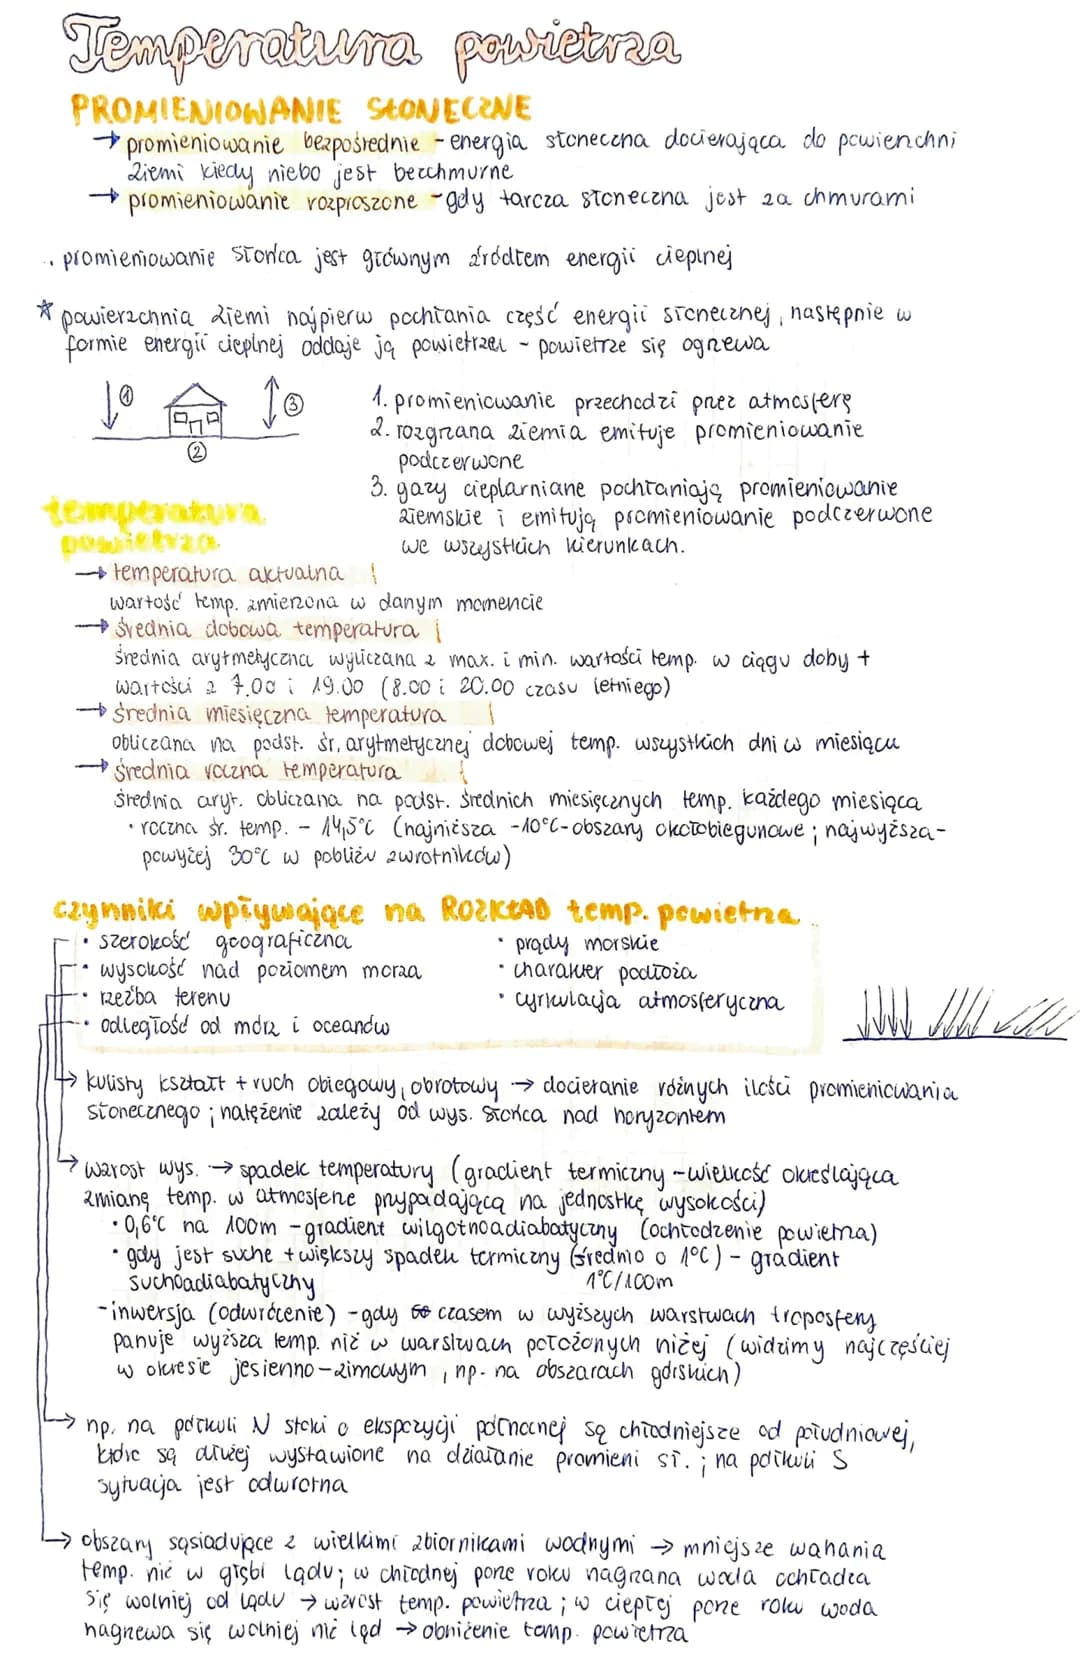 Temperatura powietrza
PROMIENIOWANIE SŁONECZNE
→ promieniowanie bezpośrednie - energia słoneczna docierająca do powierzchni
Ziemi kiedy niebo jest bezchmurne
→ promieniowanie rozproszone - gdy tarcza słoneczna jest za chmurami
• promieniowanie Słońca jest głównym źródłem energii cieplnej
* powierzchnia Ziemi najpierw pochłania część energii słonecznej, następnie w
formie energii cieplnej oddaje ją powietrzu - powietrze się ogrzewa
① ③
②
1. promieniowanie przechodzi przez atmosferę
2. rozgrzana ziemia emituje promieniowanie
podczerwone
3. gazy cieplarniane pochłaniają promieniowanie
ziemskie i emitują promieniowanie podczerwone
we wszystkich kierunkach.
temperatura
powietrza
→ temperatura aktualna
wartość temp. zmierzona w danym momencie
→ średnia dobowa temperatura
średnia arytmetyczna wyliczana z max. i min. wartości temp. w ciągu doby +
wartości z 7.00 i 19.00 (8.00 i 20.00 czasu letniego)
→ średnia miesięczna temperatura
obliczana na podst. śr. arytmetycznej dobowej temp. wszystkich dni w miesiącu
→ średnia roczna temperatura
średnia aryt. obliczana na podst. średnich miesięcznych temp. każdego miesiąca
• roczna śr. temp. - 14,5°C (najniższa -10°C - obszary okołobiegunowe ; najwyższa -
powyżej 30°C w pobliżu zwrotników)
czynniki wpływające na ROZKŁAD temp. powietrza
• szerokość geograficzna
• wysokość nad poziomem morza
• rzeźba terenu
• odległość od mórz i oceanów
• prądy morskie
• charakter podłoża
• cyrkulacja atmosferyczna
→ kulisty kształt + ruch obiegowy, obrotowy → docieranie różnych ilości promieniowania
słonecznego ; natężenie zależy od wys. Słońca nad horyzontem
→ wzrost wys. → spadek temperatury (gradient termiczny - wielkość określająca
zmianę temp. w atmosferze przypadającą na jednostkę wysokości)
• 0,6°C na 100m - gradient wilgotnoadiabatyczny (ochłodzenie powietrza)
• gdy jest suche + większy spadek termiczny (średnio o 1°C) - gradient
suchoadiabatyczny 1°C/100m
- inwersja (odwrócenie) - gdy czasem w wyższych warstwach troposfery
panuje wyższa temp. niż w warstwach położonych niżej (widzimy najczęściej
w okresie jesienno-zimowym, np. na obszarach górskich)
→ np. na półkuli N stoki o ekspozycji północnej są chłodniejsze od południowej,
które są dłużej wystawione na działanie promieni sł. ; na półkuli S
sytuacja jest odwrotna
→ obszary sąsiadujące z wielkimi zbiornikami wodnymi → mniejsze wahania
temp. niż w głębi lądu; w chłodnej porze roku nagrzana woda ochładza
się wolniej od lądu → wzrost temp. powietrza ; w ciepłej porze roku woda
nagrzewa się wolniej niż ląd → obniżenie temp. powietrza